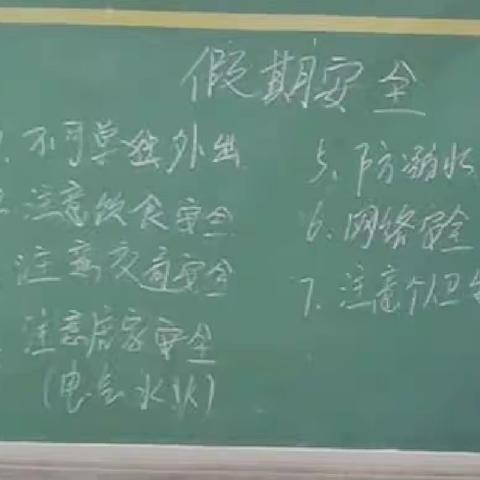 假期安全
1. 不可单独外出
2. 注意饮食安全
注意交通安全
注意居家安全
(电气水火)
5. 防溺水
6. 网络安全
7. 注意个卫生